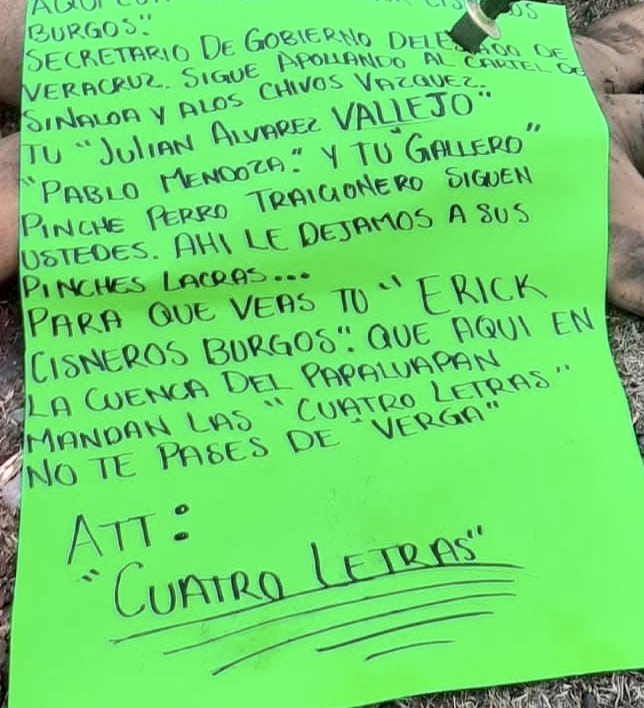 AQUI
BURGOS".
SECRETARIO DE GOBIERNO DE
VERACRUZ. SIGUE APOLLANDO AL CARTEL DE
SINALOA Y ALOS CHIVOS VAZQUEZ.
TU "JULIAN ALVAREZ VALLEJO"
"PABLO MENDOZA." Y TU "GALLERO"
PINCHE PERRO TRAICIONERO SIGUEN
USTEDES. AHI LE DEJAMOS A SUS
PINCHES LACRAS...
PARA QUE VEAS TU "ERICK
CISNEROS BURGOS". QUE AQUI EN
LA CUENCA DEL PAPALUAPAN
MANDAN LAS "CUATRO LETRAS"
NO TE PASES DE "VERGA"
ATT:
"CUATRO LETRAS"